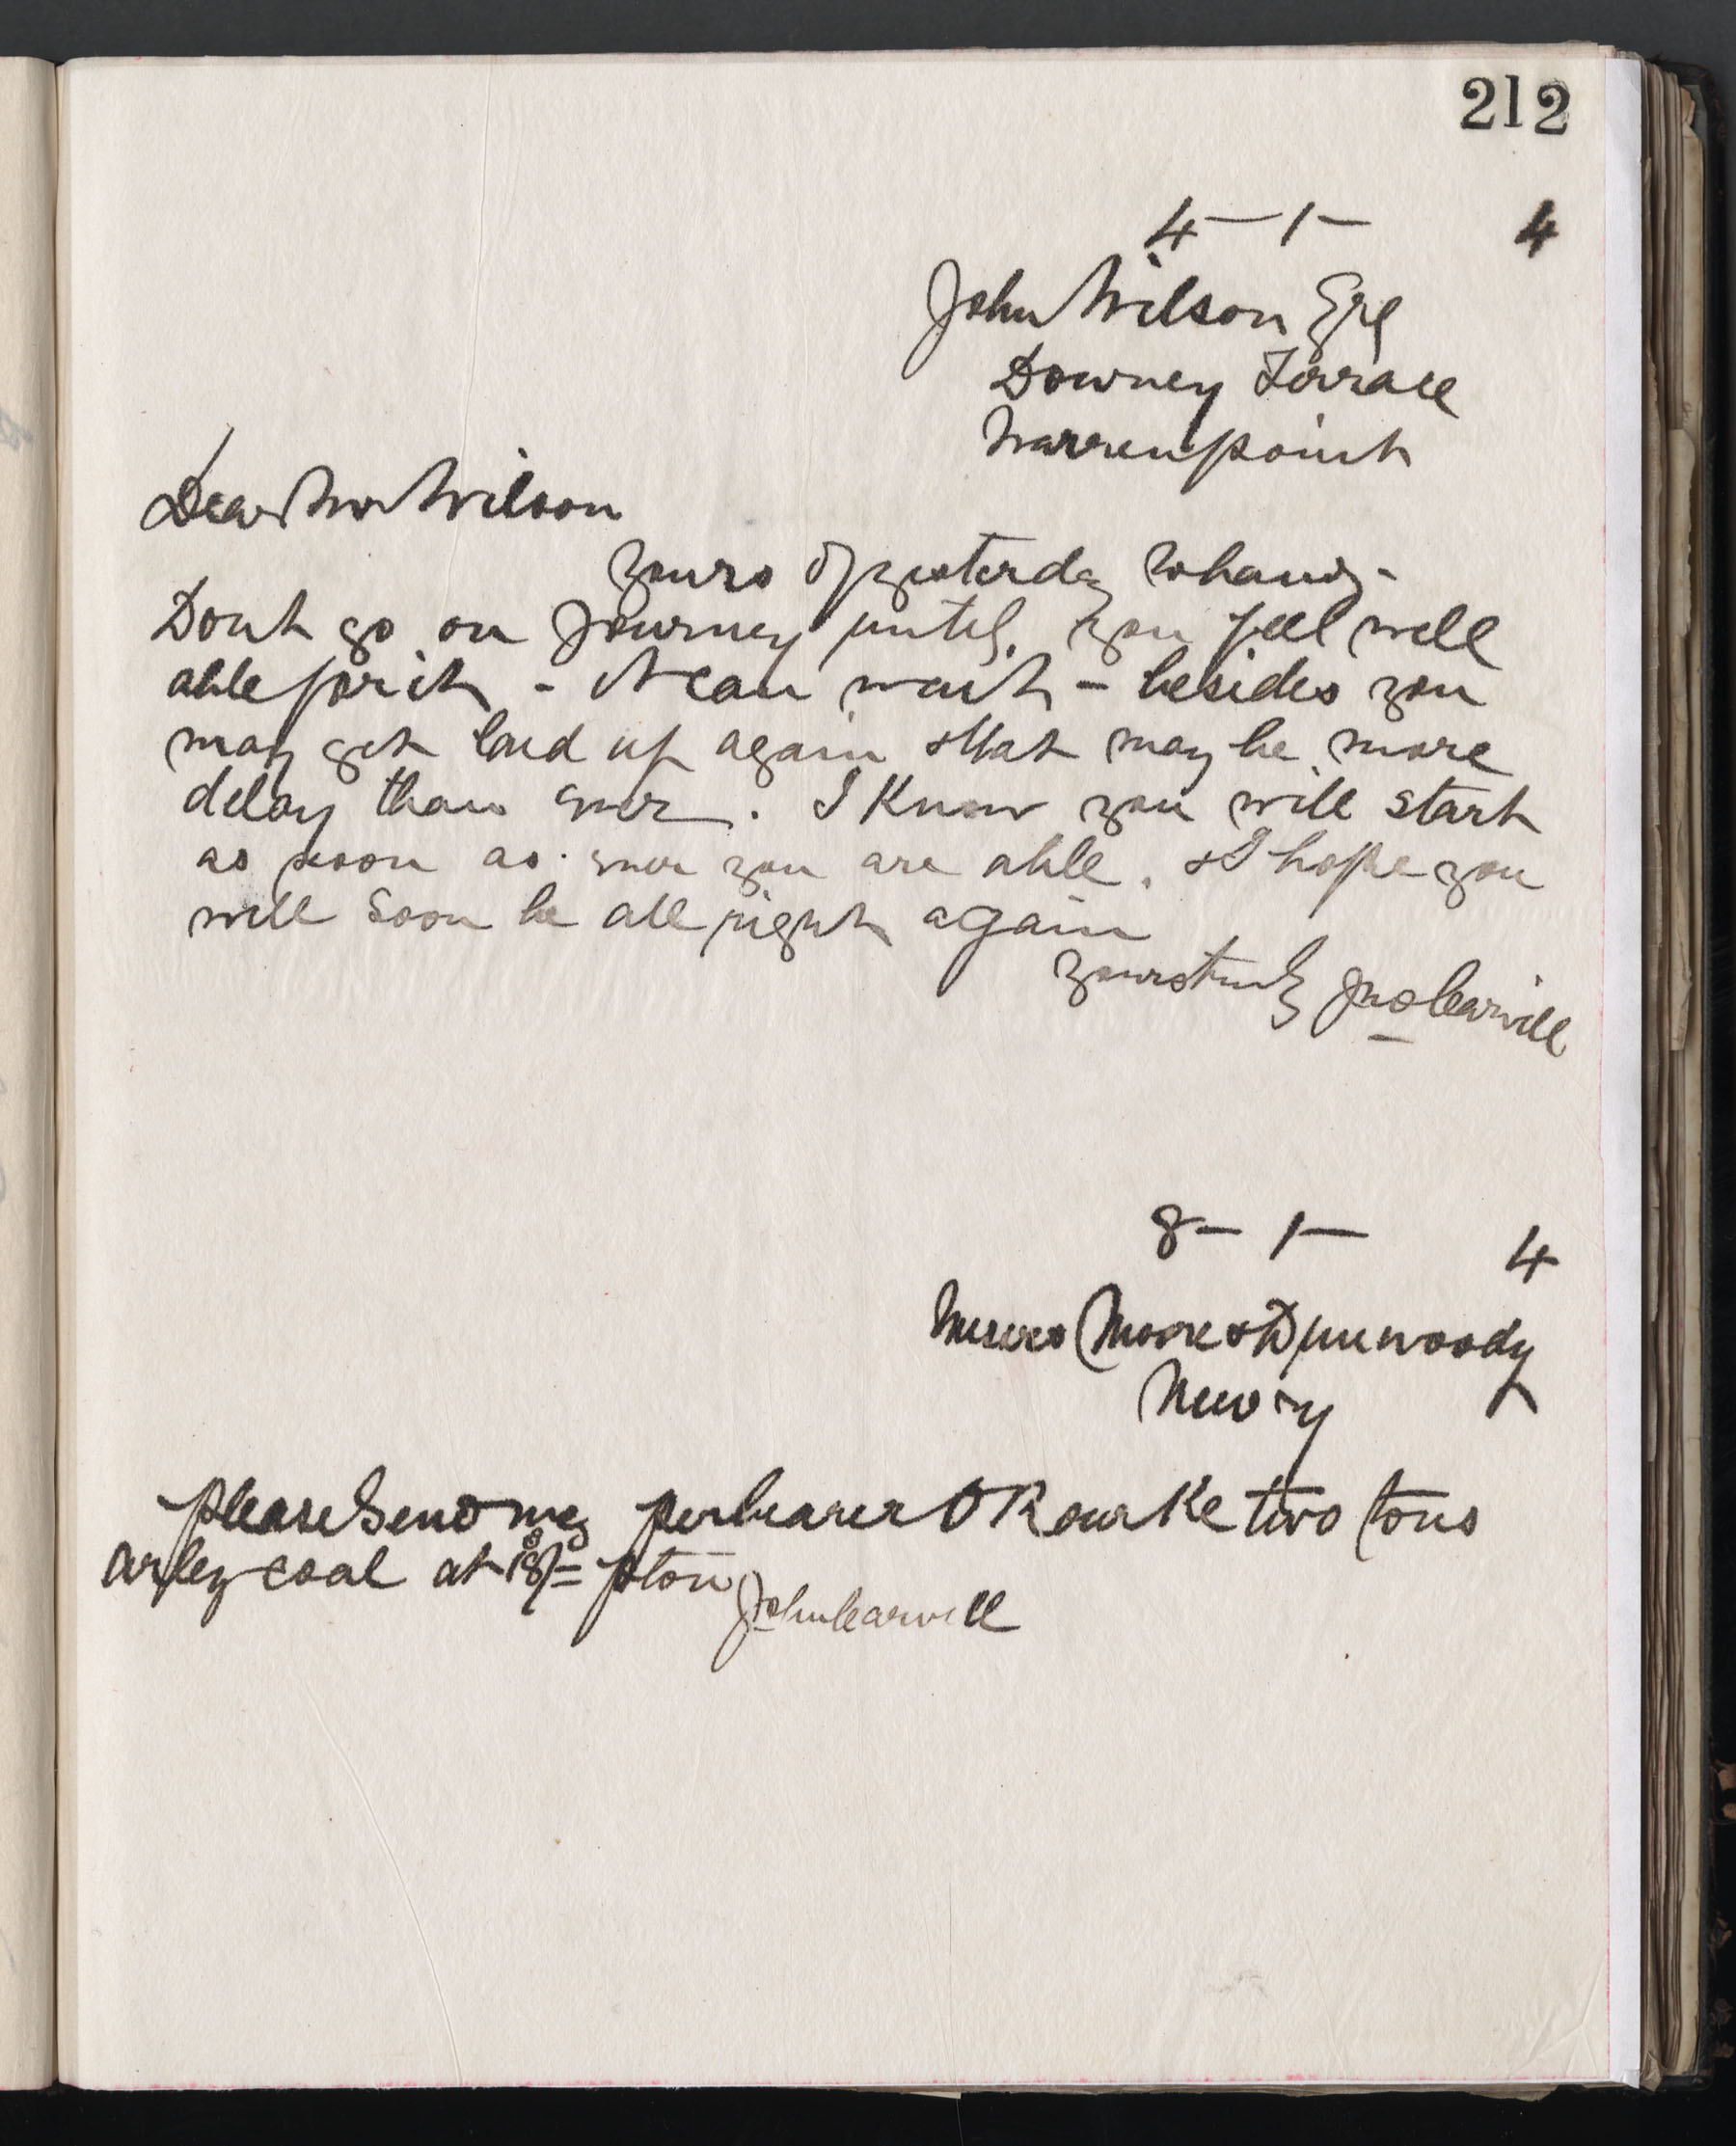 212
4 - 1 - 4
John Wilson Esq
Downey Terrace
Warrenpoint
Dear Mr Wilson
Yours of yesterday to hand -
Dont go on Journey until you feel well
able for it - It can wait - besides you
may get laid up again & that may be more
delay than ever. I know you will start
as soon as ever you are able. & I hope you
will soon be all right again
Yours truly Jno Carvill
8 - 1 - 4
Messrs Moore & Dunwoody
Newry
please send me per bearer O Rourke two tons
arley coal at 18/= p ton
John Carvill